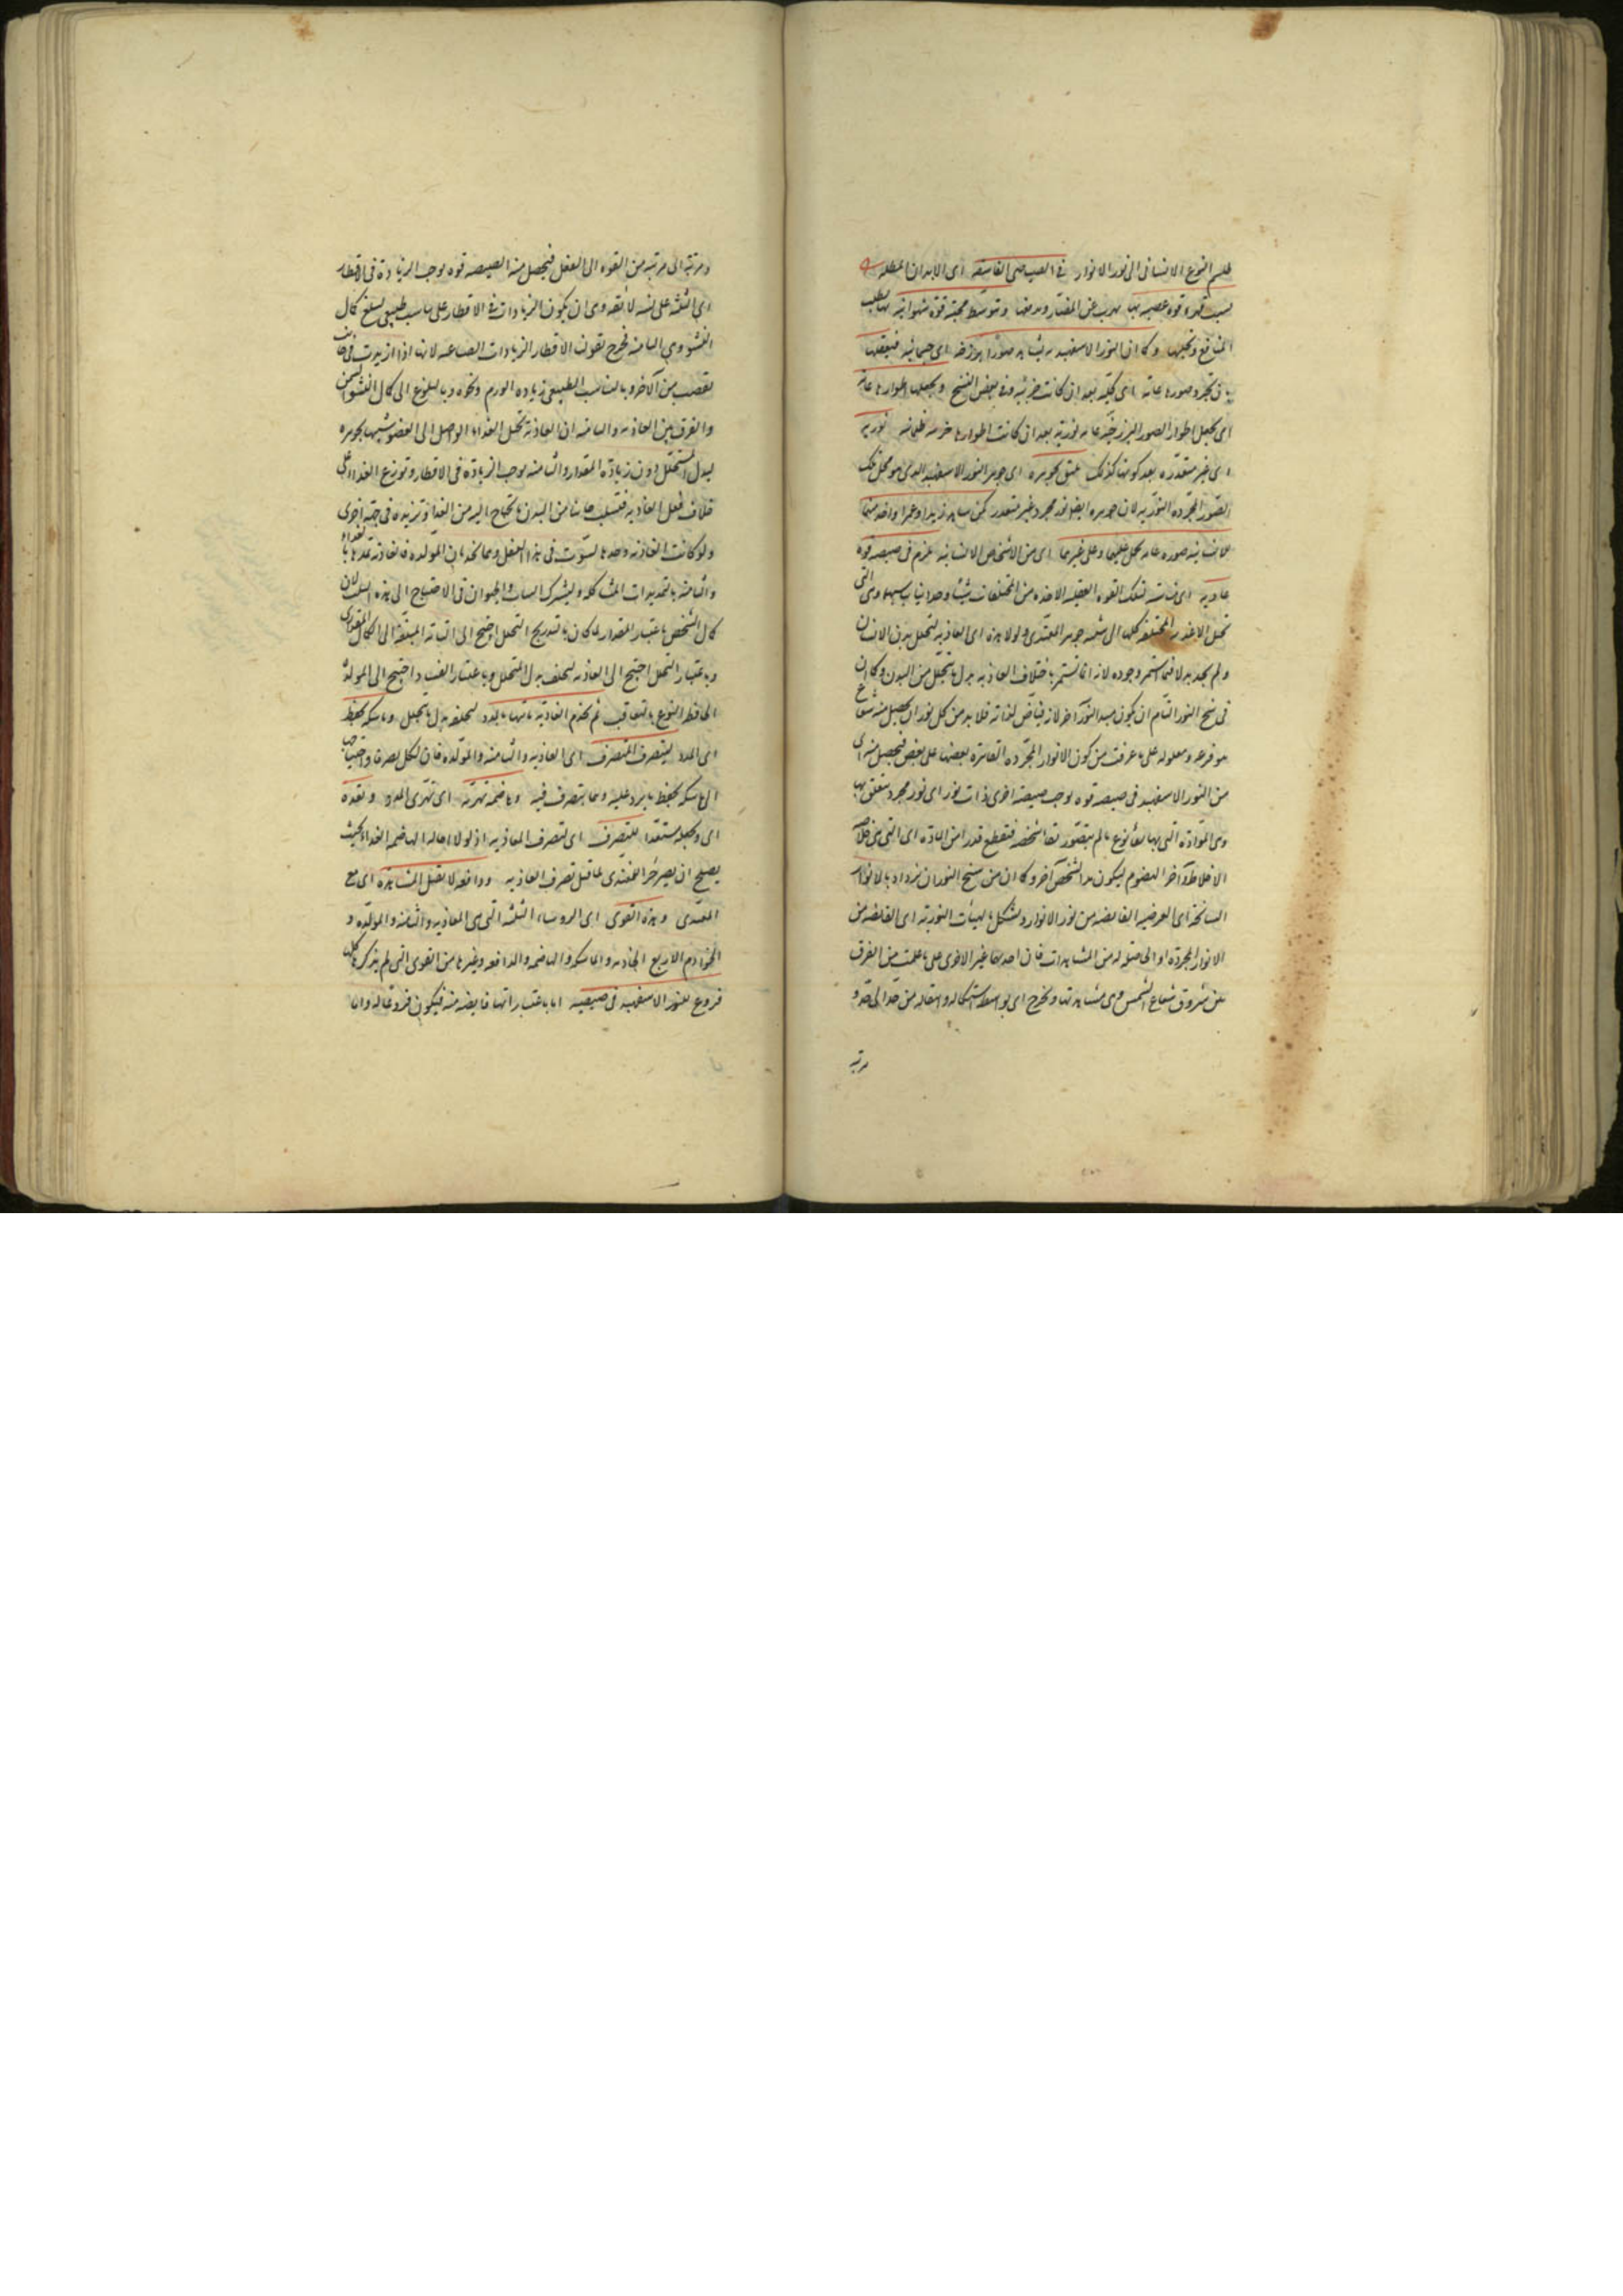 طلسم النوع الانسانى الى نور الانوار فى الصياصى الغاسقة اى الابدان المظلمة
بسبب قهره قوة غضبيه بها يهرب عن المضار ويدفعها وبتوسط محبته قوة شهوانية بها يطلب
المنافع ويجلبها وكما ان النور الاسفهبد يشاهد صورا برزخية اى جسمانية فيعقلها
بان تجرد صورها عامة اى كلية بعد ان كانت جزئية وفى بعض النسخ ويجعلها اطوارها عامة
اى يجعل اطوار الصور البرزخية عامة نورية بعد ان كانت اطوارها جزئية ظلمانية نورية
اى غير متقدرة بعد كونها كذلك يليق بجوهره اى جوهر النور الاسفهبد الذى هو محل تلك
الصور المجردة النورية لان جوهره ايضا نور مجرد غير متقدر كمن شاهد زيدا وعمرا واخذ منهما
للانسانية صورة عامة يحمل عليهما وعلى غيرهما اى من الاشخاص الانسانية يلزم فى صيصية قوة
غاذية اى مناسبة لتلك القوة العقلية الاخذة من المختلفات شيئا وحدانيا يناسبها وهى التى
تحيل الاغذية المختلفة كلها الى شبيه جوهر المغتذى ولولا هذه اى الغاذية لتحلل بدن الانسان
ولم يجد بدلا فما استمر وجوده لانه انما تستمر باخلاف الغاذية بدل ما يتحلل من البدن وكما ان
فى سنخ النور التام ان يكون مبدأ لنور آخر لانه فياض لذاته فلا بد من كل نور ان يحصل منه شعاع
هو فرعه ومعلوله على ما عرفت من كون الانوار المجردة القاهرة بعضها على بعض فيحصل منه اى
من النور الاسفهبد فى صيصية قوة يوجب صيصية اخرى ذات نور اى نور مجرد متعلق بها
وهى المولدة التى بها بقاء نوع ما لم يتصور بقاء شخصه فتقطع قدرا من المادة اى التى هى خلاصة
الاخلاط وآخر الهضوم ليكون مبدأ لشخص آخر وكما ان من سنخ النور ان يزداد بالانوار
السانحة اى العرضية الفايضة من نور الانوار ويتشكل بالهيئات النورية اى الفايضة من
الانوار المجردة او الحاصلة له من المشاهدات فان احديهما غير الاخرى على ما علمت من الفرق
بين شروق شعاع الشمس وبين مشاهدتها ويخرج اى بواسطة استكماله وانتقاله من حد الى حد و
مرتبة
ومرتبة الى مرتبة من القوة الى الفعل فيحصل منه الصيصية قوة يوجب الزيادة فى الاقطار
اى الثلثة على نسبة لايقة وهى ان يكون الزيادات فى الاقطار على تناسب طبيعى ليبلغ كمال
النشو وهى النامية فخرج بقولنا الاقطار الزيادات الصناعية لانها اذا ازيدت فى جانب
نقصت من الآخر وبالتناسب الطبيعى زيادة الورم ونحوه وببلوغ الى كمال النشو السمن
والفرق بين الغاذية والنامية ان الغاذية تحيل الغذاء الواصل الى العضو شبيها بجوهره
ليبدل المتحلل دون زيادة المقدار والنامية يوجب الزيادة فى الاقطار وتوزع الغذاء على
خلاف فعل الغاذية فتسلب جانبا من البدن ما يحتاج اليه من الغذاء وتزيده فى جهة اخرى
ولو كانت الغاذية وحدها لسوت فى هذا الفعل وهما يخدمان المولدة فالغاذية تمدها بالغذاء
والنامية بالتمديدات المشاكلة ويشترك النبات والحيوان فى الاحتياج الى هذه الثلث لان
كمال الشخص باعتبار المقدار لما كان بالتدريج احتيج الى النامية المبلغة الى الكمال المقدارى
وباعتبار التحلل احتيج الى الغاذية لتخلف بدل المتحلل وباعتبار الفساد احتيج الى المولدة
الحافظة للنوع بالتعاقب ثم يخدم الغاذية جاذبة ياتيها بالمدد لتخلفه بدل ما يتحلل وماسكة يحفظ
اى المدد ليتصرف المتصرف اى الغاذية والنامية والمولدة فان لكل تصرفا واحتياجا
الى ماسكة يحفظ ما يرد عليه وما يتصرف فيه وهاضمة تهرّئه اى تهرّى المدد وتعده
اى ويجعله مستعدا للتصرف اى لتصرف الغاذية اذ لولا احالة الهاضمة الغذاء بحيث
يصلح ان يصير جزء المغتذى لما قبل تصرف الغاذية ودافعة لما لا يقبل المشابهة اى مع
المغتذى وهذه القوى اى الروساء الثلثة التى هى الغاذية والنامية والمولدة و
الخوادم الاربع الجاذبة والماسكة والهاضمة والدافعة وغيرها من القوى التى لم يذكر ها كلها
فروع للنور الاسفهبد فى صيصيته اما باعتبار انها فايضة منه فيكون فروعا له واما